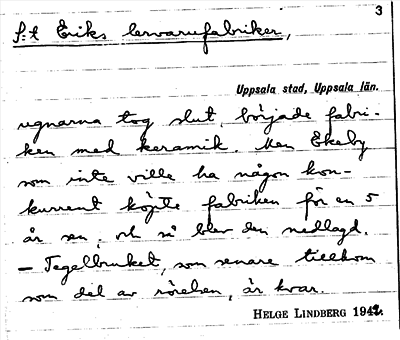 3
S:t Eriks lervarufabriker,
Uppsala stad, Uppsala län.
ugnarna tog slut, började fabri-
ken med keramik. Men Ekeby
som inte ville ha någon kon-
kurrent köpte fabriken för en 5
år sen, och så blev den nedlagd.
— Tegelbruket, som senare tillkom
som del av rörelsen, är kvar.
HELGE LINDBERG 1942.